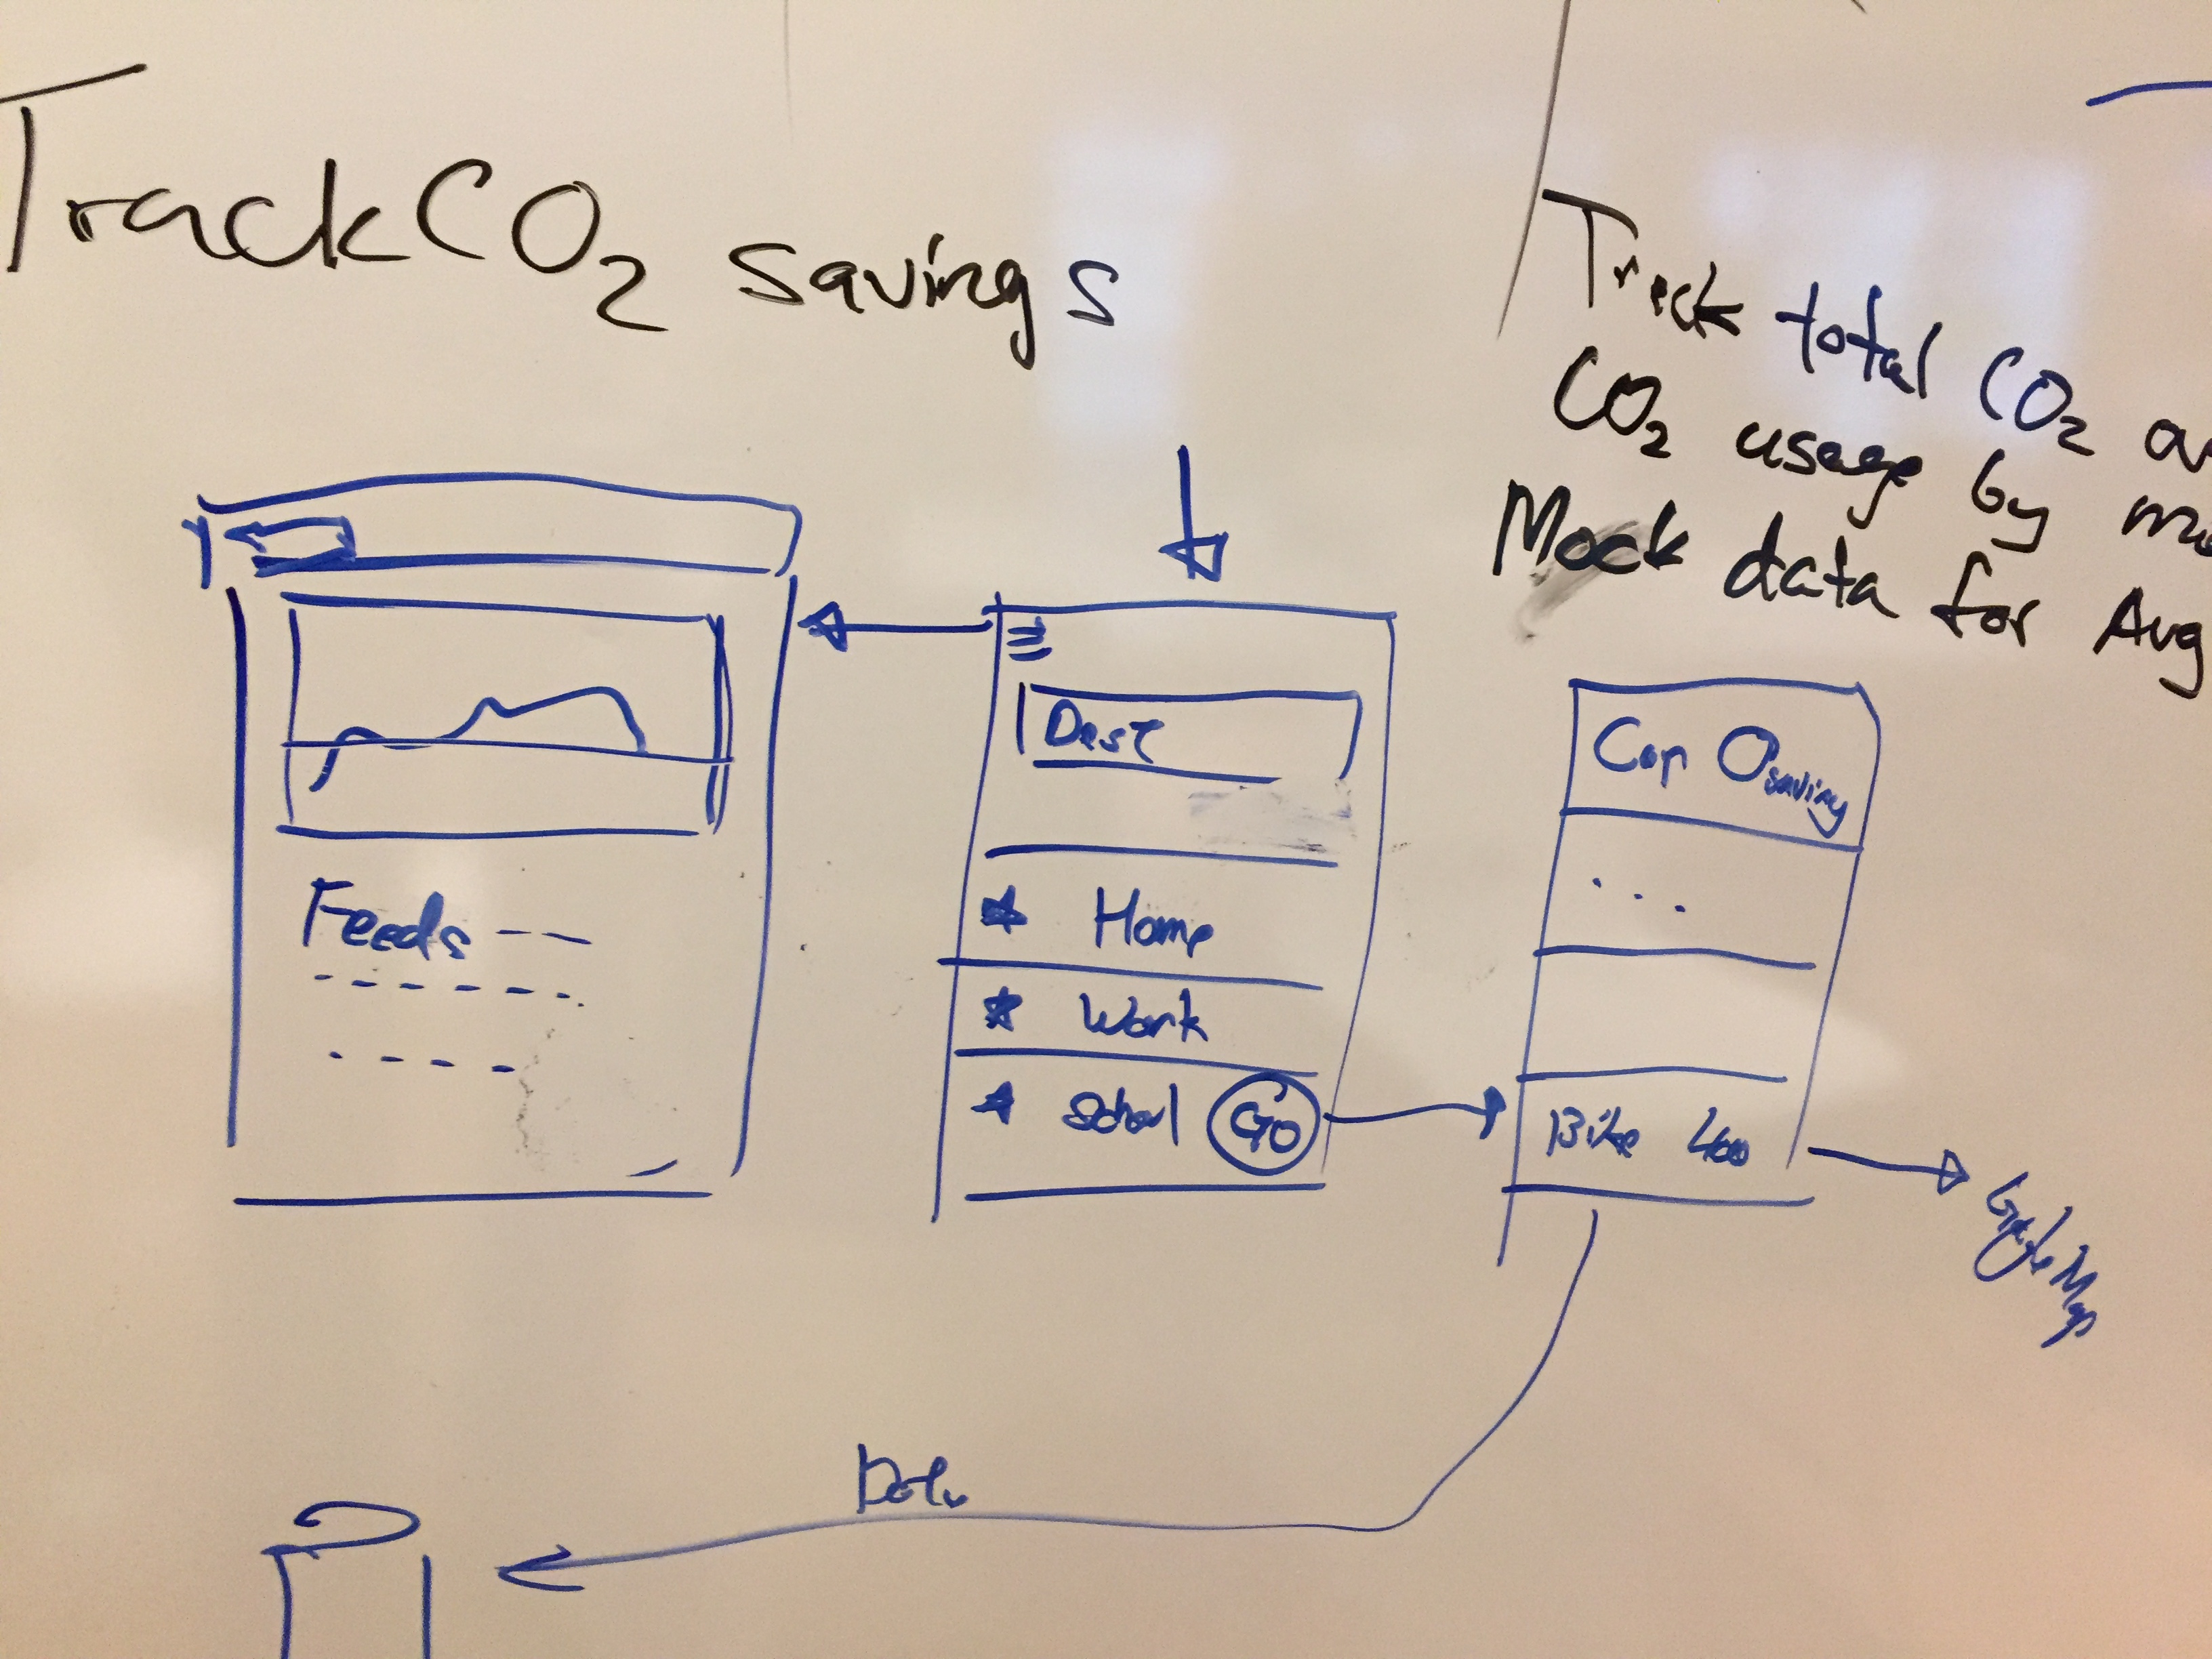 Track CO2 savings
Track total CO2
CO2 usage by
Mock data for Aug
Feeds
Dest
Home
Work
School Go
Car 0 saving
...
Bike 400
Google Maps
Data